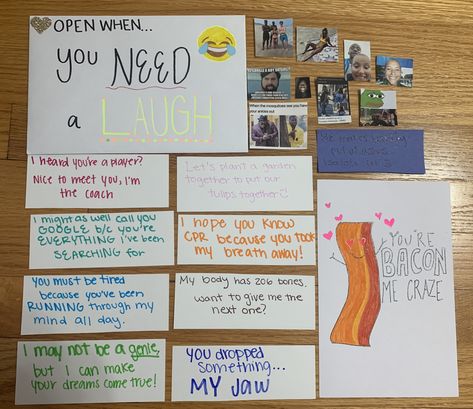 OPEN WHEN...
you NEED
a LAUGH
When the mosquitoes see you have
your ankles out
I heard you're a player?
Nice to meet you, I'm
the coach
Let's plant a garden
together to put our
tulips together
I might as well call you
GOOGLE b/c you're
EVERYTHING i've been
SEARCHING for
I hope you know
CPR because you took
my breath away!
You must be tired
because you've been
RUNNING through my
mind all day.
My body has 206 bones.
want to give me the
next one?
I may not be a genie,
but I can make
your dreams come true!
You dropped
something...
MY JAW
YOU'RE
BACON
ME CRAZE